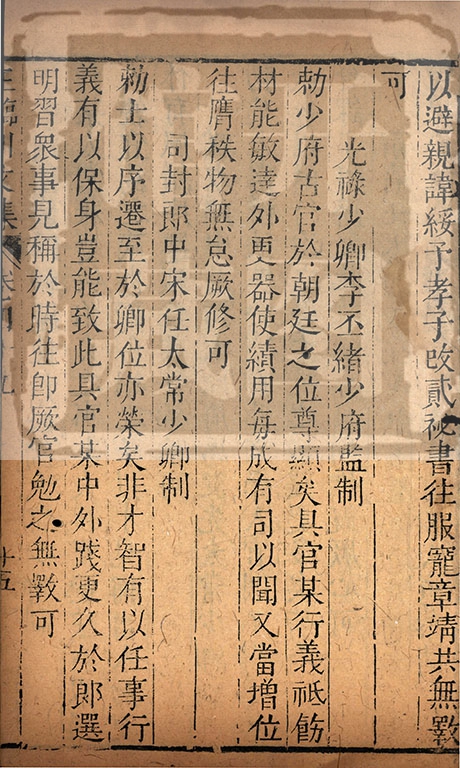 以避親諱綏予孝子改貳祕書往服寵章靖共無斁
可
光祿少卿李丕緒少府監制
勑少府古官於朝廷之位尊顯矣具官某行義祗飭
材能敏達外更器使績用每成有司以聞又當增位
往膺秩物無怠厥修可
司封郎中宋任太常少卿制
勑士以序遷至於卿位亦榮矣非才智有以任事行
義有以保身豈能致此具官某中外踐更久於郎選
明習衆事見稱於時往卽厥官勉之無斁可
王臨川文集 卷四十九 十五